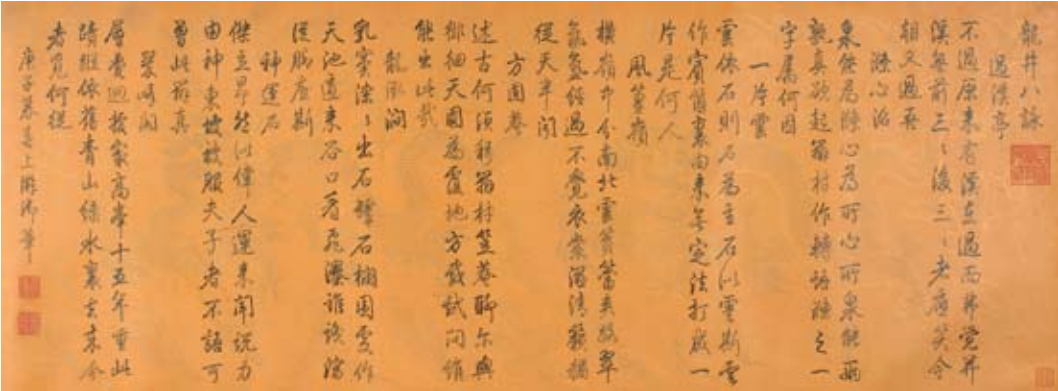 龍井八詠
過溪亭
不過原來有溪在過而弗覺弗
溪無前三三後三三老廬笑今
朝又過吾
滌心沼
泉能為滌心為所心所泉能兩
孰真欲起翁村作轉語滌之一
字屬何因
一片雲
雲依石則石為主石以雲斯雲
作賓舊裏由來無定法打成一
片是何人
風篁嶺
橫嶺中分南北雲篔簹夾路翠
氤氳經過不覺衣裳濕清籟獨
從天半聞
方圓菴
述古何須移翁村笠菴聊尔與
細天圓為覆地方載試問誰
能出此哉
龍泓澗
乳竇淙〻出石罅石欄圍處作
天池遠來谷口看飛瀑誰識濫
從脈處斯
神運石
傑立昂然似偉人運來聞說力
由神東坡披服夫子者不語可
曾此語真
翠峰閣
層甍迴接最高峯十五年重此
依舊青山綠水裏去來今
者覓何蹤
庚子暮春上澣御筆